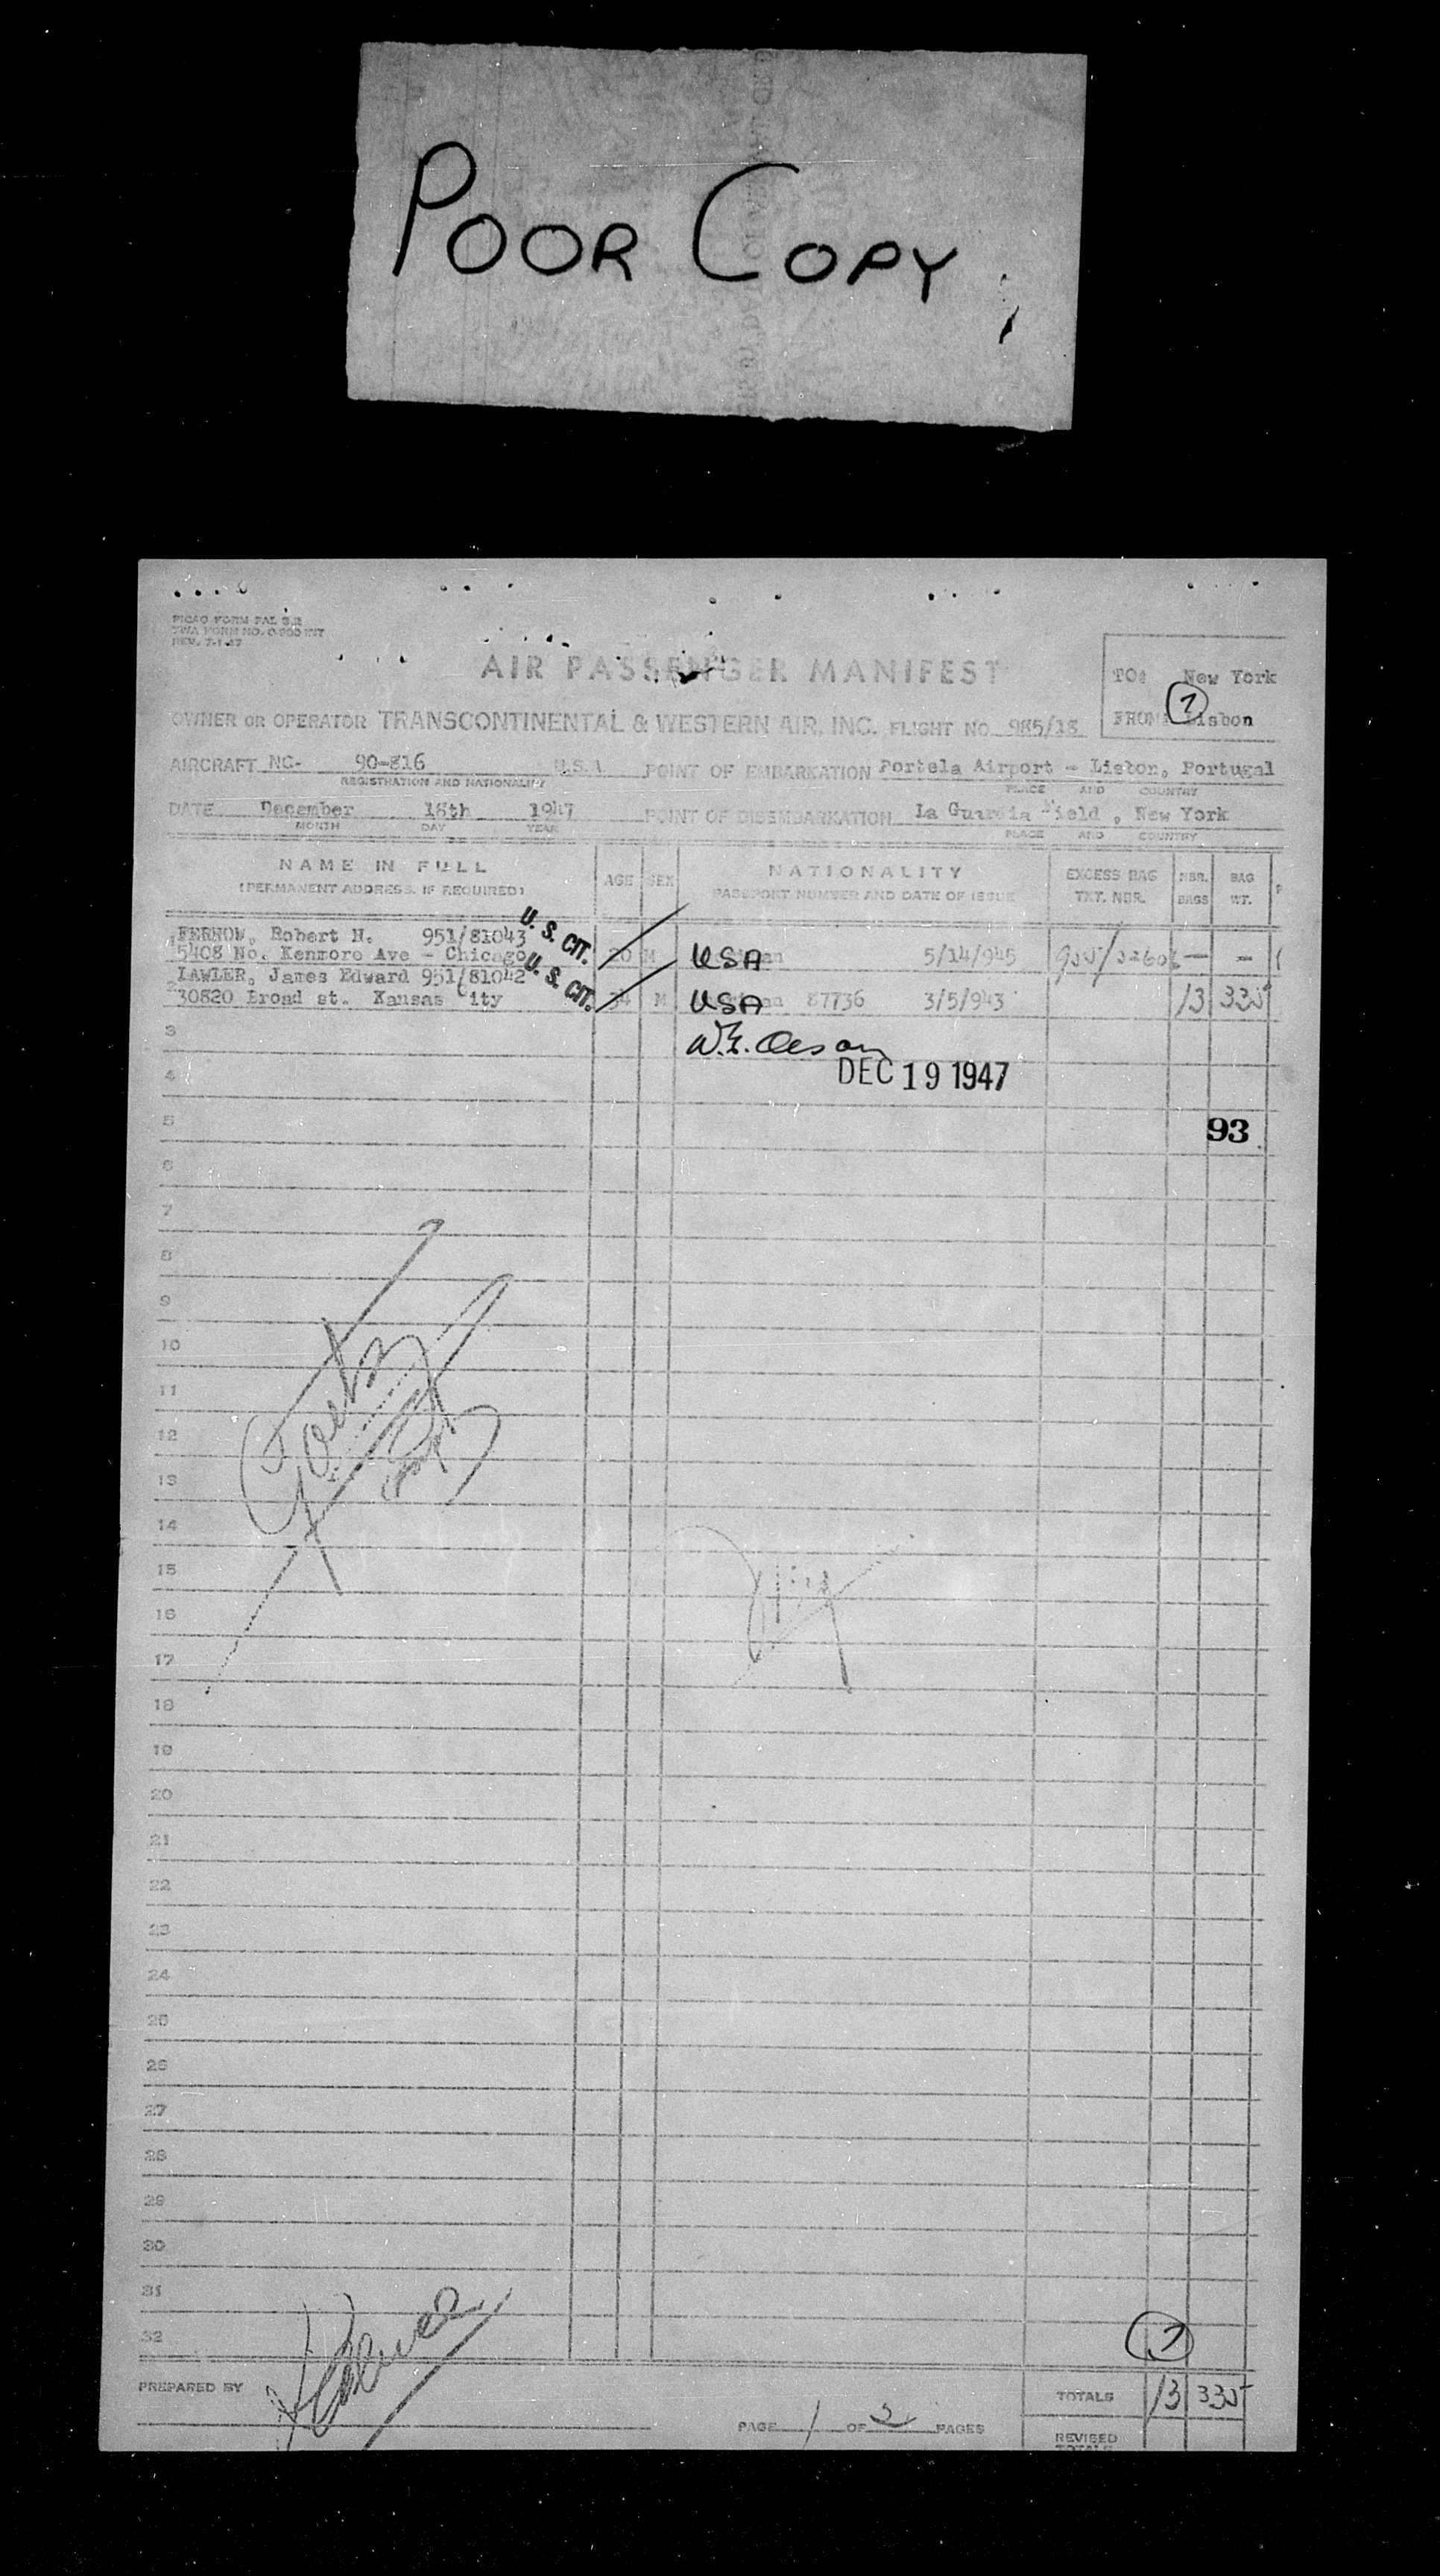 POOR COPY
PICAO FORM PAL 3.2
TWA FORM NO.
REV. 7-1-47
AIR PASSENGER MANIFEST
TO: New York
FROM: Lisbon
1
OWNER OR OPERATOR TRANSCONTINENTAL & WESTERN AIR, INC. FLIGHT NO. 985/18
AIRCRAFT NC- 90-816 U.S.A. POINT OF EMBARKATION Portela Airport - Lisbon, Portugal
REGISTRATION AND NATIONALITY PLACE AND COUNTRY
DATE December 18th 1947 POINT OF DISEMBARKATION La Guardia Field, New York
MONTH DAY YEAR PLACE AND COUNTRY
NAME IN FULL AGE SEX NATIONALITY EXCESS BAG NBR. BAG
(PERMANENT ADDRESS, IF REQUIRED) PASSPORT NUMBER AND DATE OF ISSUE TKT. NBR. BAGS WT.
1 FERNOW, Robert H. 951/81043 U. S. CIT.
5408 No. Kenmore Ave - Chicago 20 M USA 5/14/945 — —
LAWLER, James Edward 951/81042 U. S. CIT.
2 30820 Broad st. Kansas ity 34 M USA 87736 3/5/943 13 335
3
DEC 19 1947
4
5 93
6
7
8
9
10
11
12
13
14
15
16
17
18
19
20
21
22
23
24
25
26
27
28
29
30
31
32
1
PREPARED BY TOTALS 13 335
PAGE 1 OF 2 PAGES
REVISED
TOTALS